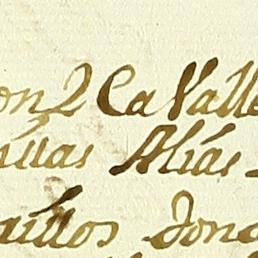 on 2 CaValle
illas Alias
aillos Jona